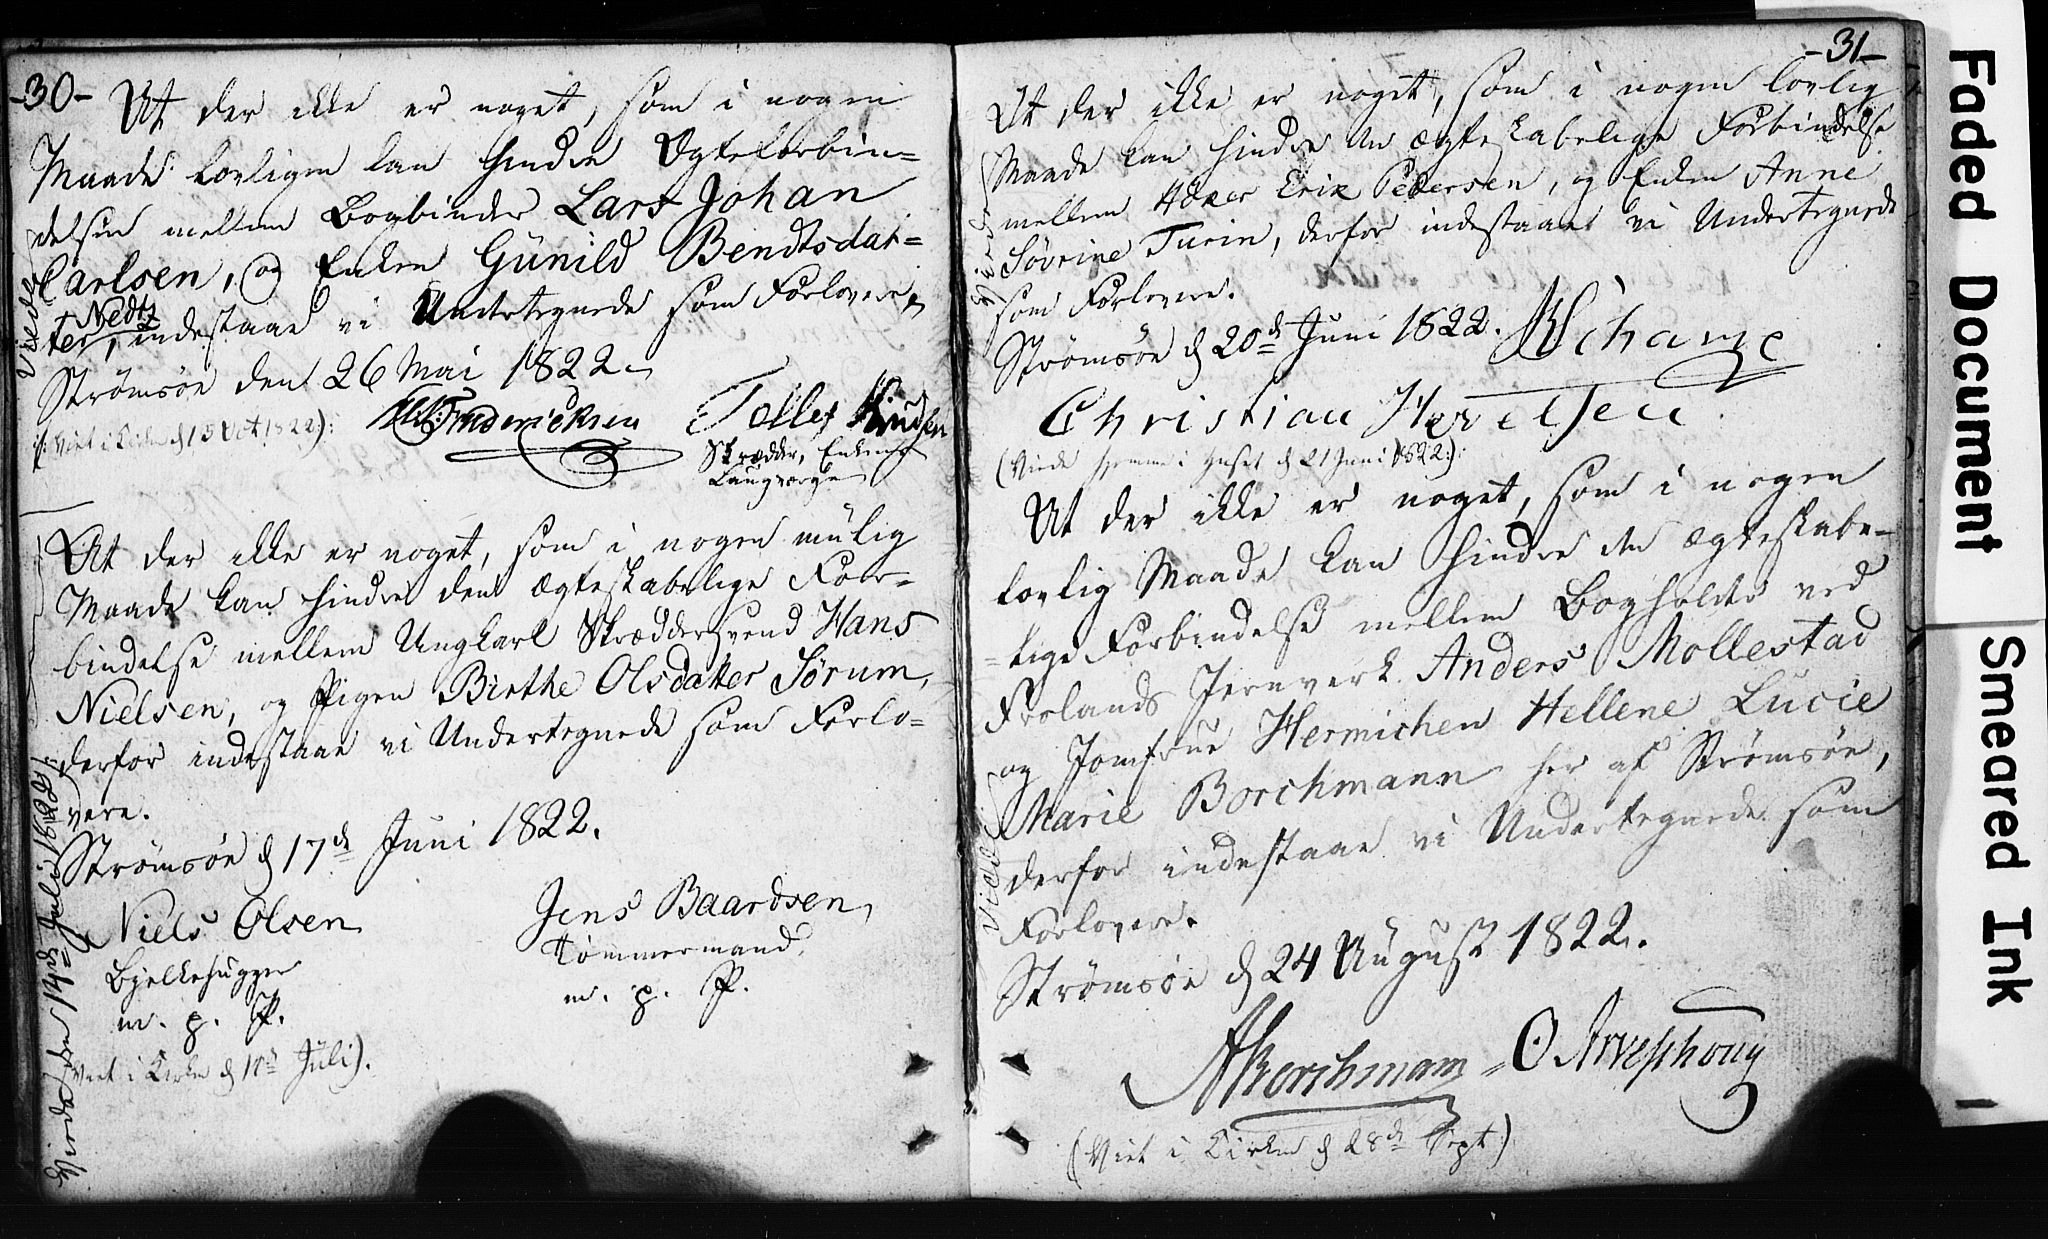 -30-
At der ikke er noget, som i nogen
Maade lovligen kan hindre Ægteforbin=
delsen mellem Bogbinder Lars Johan
Carlsen, og Enken Günild Bendtsdat=
ter, Nedtz indestaae vi Undertegnede som Forlovere,
Strømsøe den 26 Mai 1822.
(: Viet i Kirken d 15 Oct 1822:)
Friderichsen Tellef Knudsen
Skrædder, Enkens
Laugværge
Viede
At der ikke er noget, som i nogen mulig
Maade kan hindre den ægteskabelige For-
bindelse mellem Ungkarl Skræddersvend Hans
Nielsen, og Pigen Birthe Olsdatter Sørum,
derfor indestaae vi Undertegnede som Forlo=
vere.
Strømsøe d 17de Juni 1822.
Niels Olsen Jens Baardsen,
Bjelkehugger Tømmermand,
m. p. P. m. p. P.
Viet i Kirken d Juli).
Viede den 14de Juli 1822
-31-
At der ikke er noget, som i nogen lovlig
Maade kan hindre den ægteskabelige Forbindelse
mellem Høker Erik Pedersen, og Enken Anne
Søvrine Turin, derfor indestaaer vi Undertegnede
som Forlovere.
Strømsøe d 20de Juni 1822.
Christian
(Viede hjemme i Huset d 21 Juni 1822:)
Viede
At der ikke er noget, som i nogen
lovlig Maade kan hindre den ægteskabe-
=lige Forbindelse mellem Bogholder ved
Frolands Jernverk Anders Mollestad
og Jomfrue Hermichen Hellene Lucie
Marie Borchmann her af Strømsøe,
derfor indestaae vi Undertegnede som
Forlovere.
Strømsøe d 24 August 1822.
Borchmann O Arveschoug
(Viet i Kirken d 28de Sept:)
Viede
Faded Document
Smeared Ink